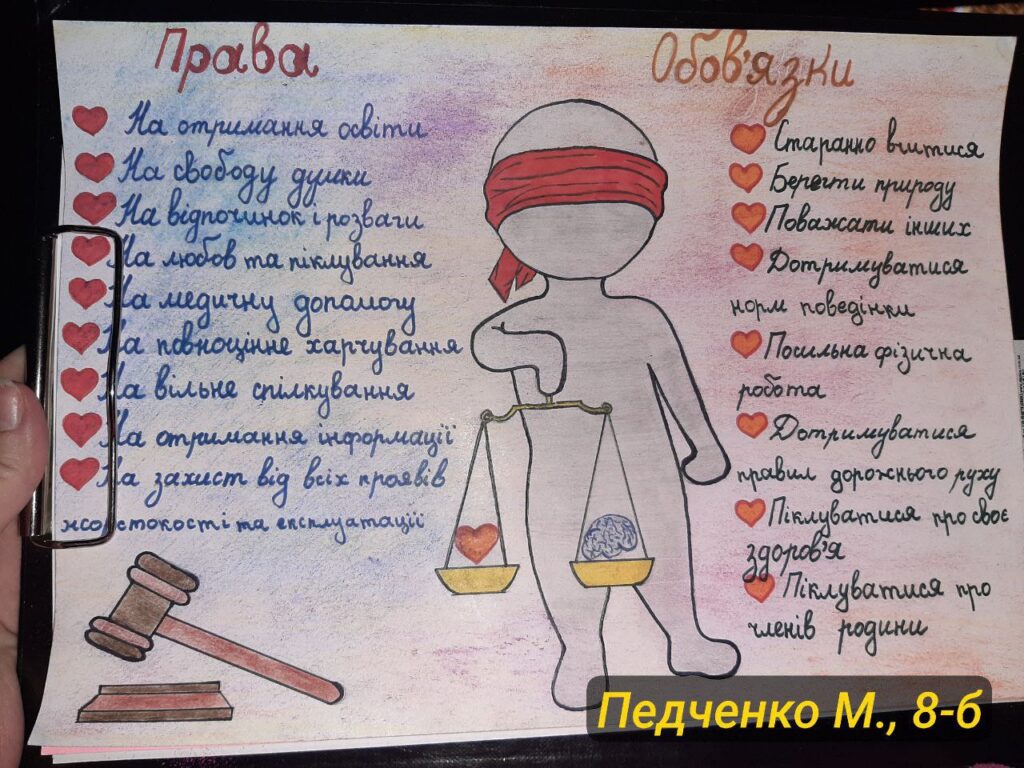 Права
На отримання освіти
На свободу думки
На відпочинок і розваги
На любов та піклування
На медичну допомогу
На повноцінне харчування
На вільне спілкування
На отримання інформації
На захист від всіх проявів
жорстокості та експлуатації
Обов'язки
Старанно вчитися
Берегти природу
Поважати інших
Дотримуватися
норм поведінки
Посильна фізична
робота
Дотримуватися
правил дорожнього руху
Піклуватися про своє
здоров'я
Піклуватися про
членів родини
Педченко М., 8-б